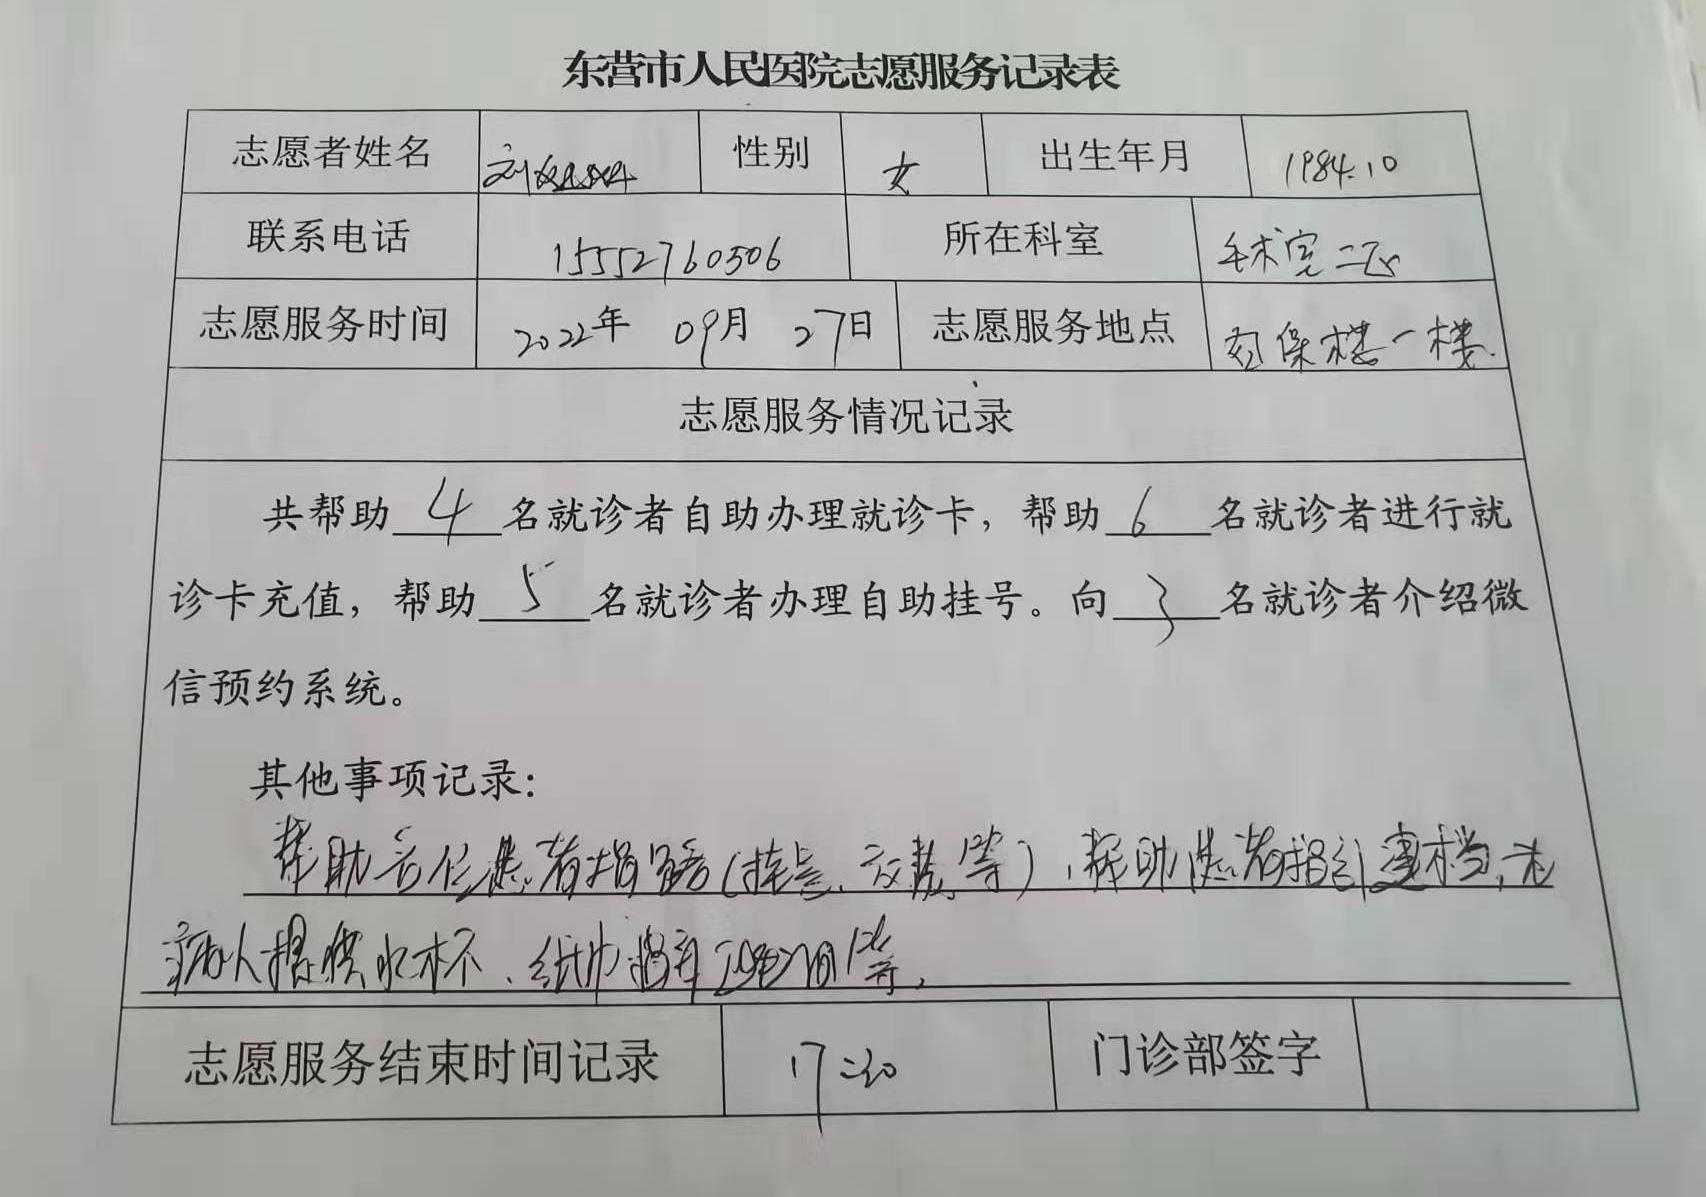 东营市人民医院志愿服务记录表
志愿者姓名 刘 性别 女 出生年月 1984.10
联系电话 15552760506 所在科室 手术室二区
志愿服务时间 2022年 09月 27日 志愿服务地点 妇保楼一楼.
志愿服务情况记录
共帮助 4 名就诊者自助办理就诊卡，帮助 6 名就诊者进行就
诊卡充值，帮助 5 名就诊者办理自助挂号。向 3 名就诊者介绍微
信预约系统。
其他事项记录：
帮助各位患者指路（挂号、交费等），帮助患者指引建档，为
病人提供水杯、纸巾 等，
志愿服务结束时间记录 17:30 门诊部签字